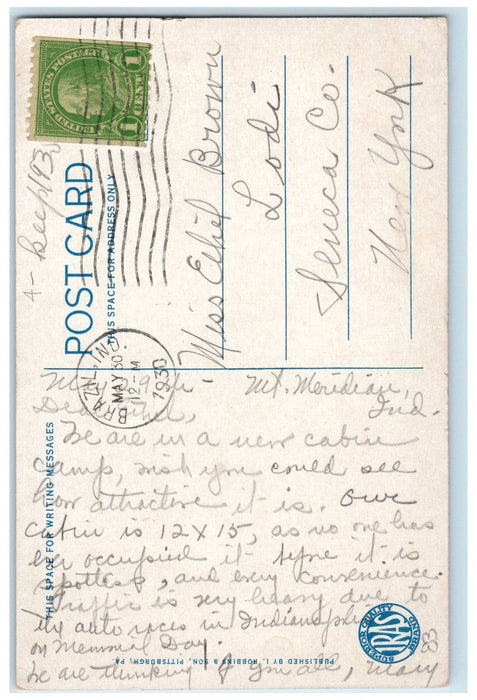 UNITED STATES POSTAGE
1 CENT 1
BRAZIL, IND.
MAY 30
12-M
1930
POST CARD
THIS SPACE FOR ADDRESS ONLY
Miss Ethel Brown
Lodi
Seneca Co.
New York
THIS SPACE FOR WRITING MESSAGES
May 29th Mt. Meridian,
Ind.
Dear Ethel,
We are in a new cabin
camp, wish you could see
how attractive it is. Our
cabin is 12 x 15, as no one has
ever occupied it it is
spotless, and every convenience.
Traffic is very heavy due to
the auto races in Indianapolis
on Memorial Day.
We are thinking of you all, Mary
PUBLISHED BY I. ROBBINS & SON, PITTSBURGH, PA
SUPERIOR QUALITY
IRAS
BRAND